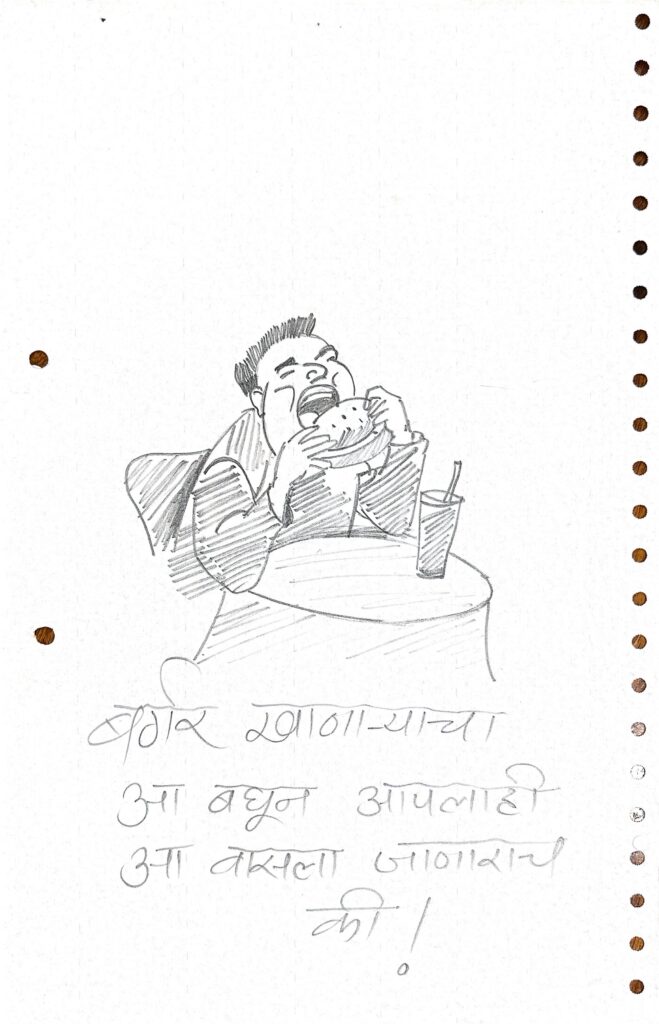 बर्गर खाणाऱ्याचा
आ बघून आपलाही
आ वासला जाणारच
की!